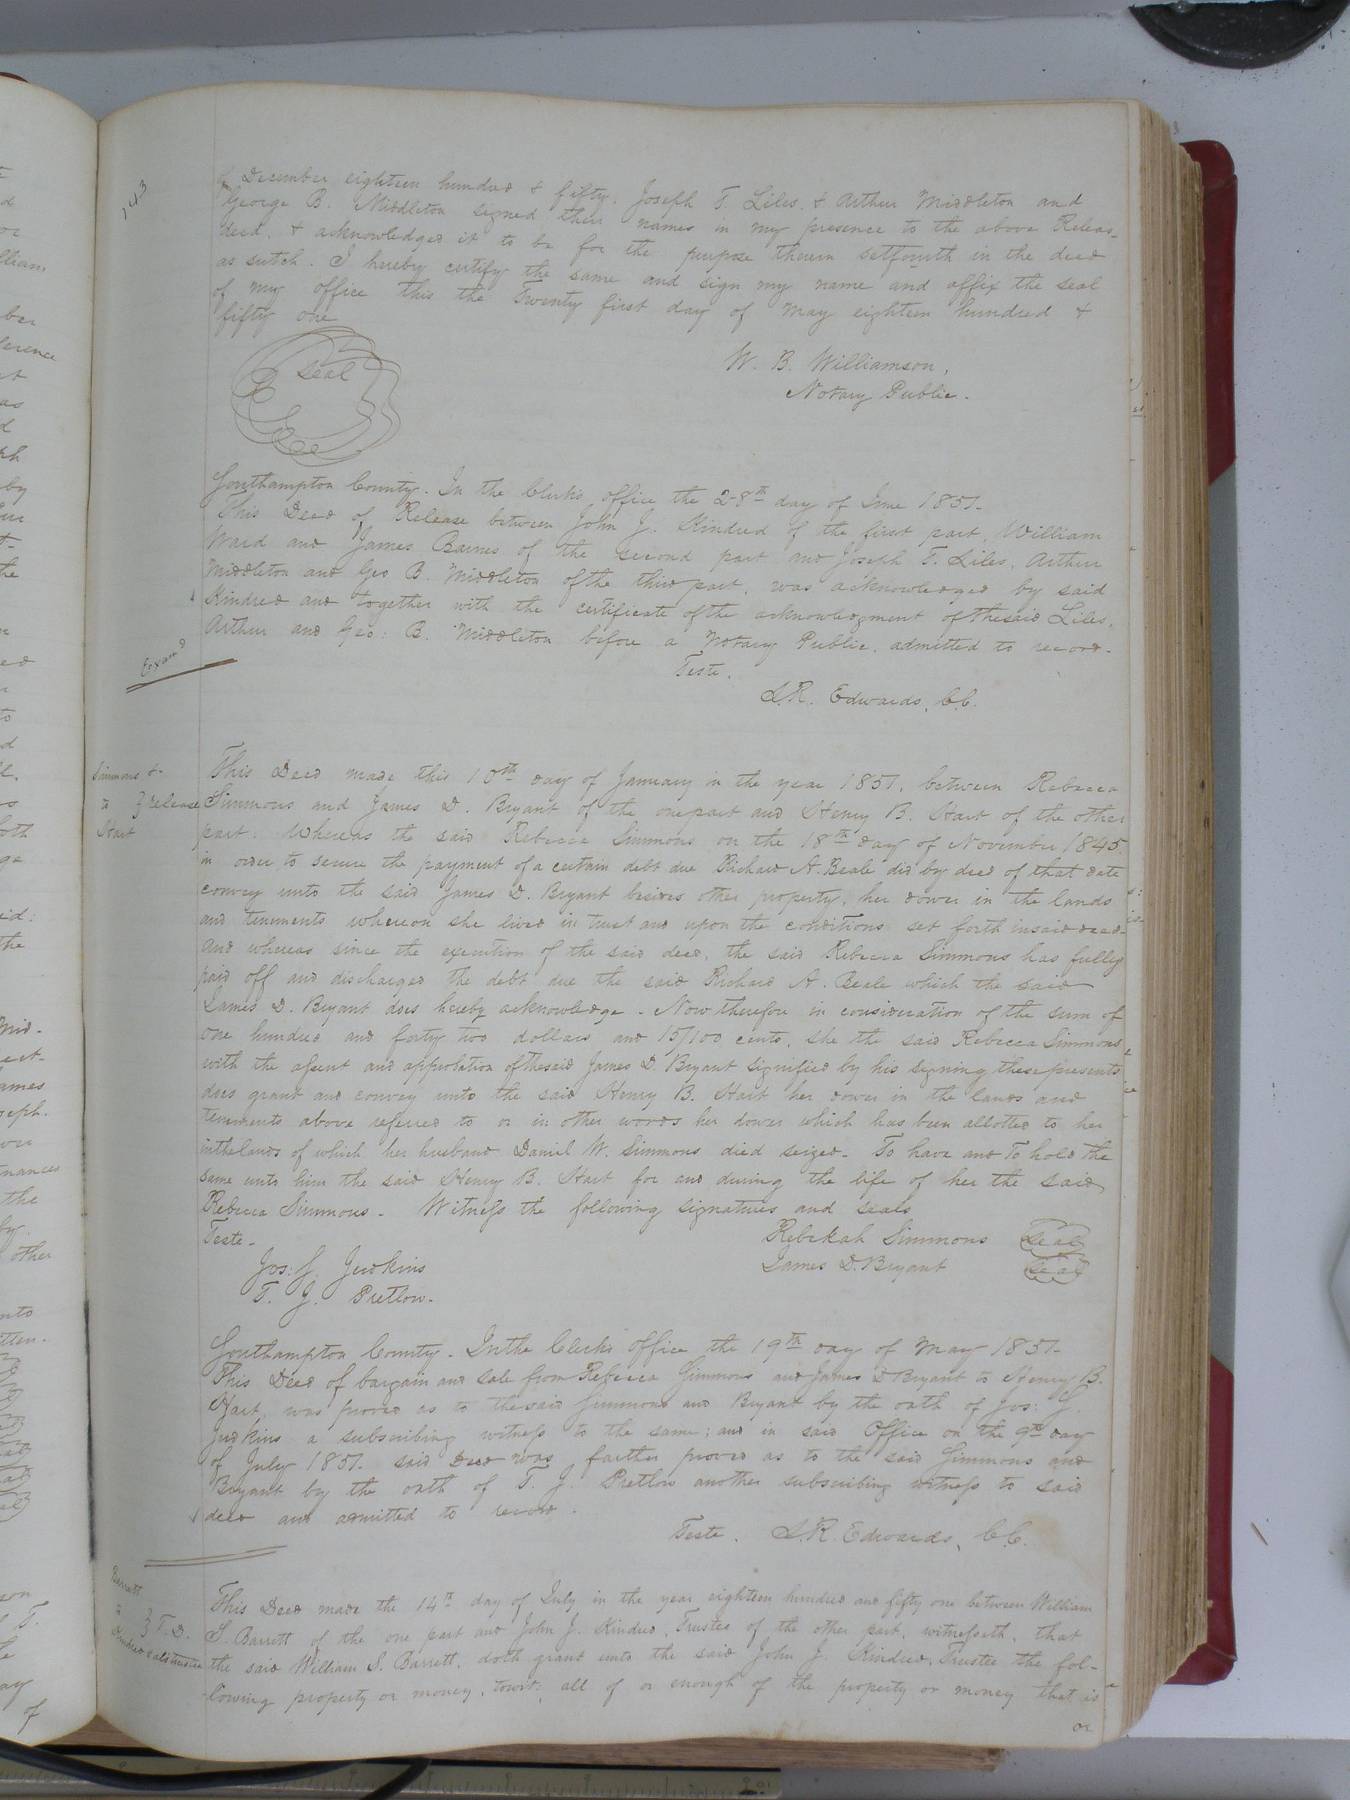 143
of December eighteen hundred & fifty. Joseph T. Liles. & Arthur Middleton and
George B. Middleton signed their names in my presence to the above Releas_
deed. & acknowledged it to be for the purpose therein setfourth in the deed
as sutch. I hereby certify the same and sign my name and affix the seal
of my office this the Twenty first day of May eighteen hundred &
fifty one
Seal
W. B. Williamson,
Notary Public.
Southampton County. In the Clerks office the 28th day of June 1851.
This Deed of Release between John J. Kindred of the first part, William
Ward and James Barnes of the second part and Joseph T. Liles, Arthur
Middleton and Geo B. Middleton of the third part, was acknowledged by said
Kindred and together with the certificate of the acknowledgment of the said Liles,
Arthur and Geo: B. Middleton before a Notary Public, admitted to record.
Examd
Teste.
L.R. Edwards, C.C.
Simmons &
to } release
Hart
This Deed made this 10th day of January in the year 1851, between Rebecca
Simmons and James D. Bryant of the one part and Henry B. Hart of the other
part: Whereas the said Rebecca Simmons on the 18th day of November 1845.
in order to secure the payment of a certain debt due Richard A. Beale did by deed of that date
convey unto the said James D. Bryant besides other property, her dower in the lands
and tenements whereon she lived in trust and upon the conditions set forth in said deed-
and whereas since the execution of the said deed, the said Rebecca Simmons has fully
paid off and discharged the debt due the said Richard A. Beale which the said
James D. Bryant does hereby acknowledge - Now therefore in consideration of the sum of
one hundred and forty two dollars and 15/100 cents, she the said Rebecca Simmons
with the assent and approbation of the said James D. Bryant signified by his signing these presents
does grant and convey unto the said Henry B. Hart her dower in the lands and
tenements above referred to or in other words her dower which has been allotted to her
in the lands of which her husband Daniel W. Simmons died seized - To have and To hold the
same unto him the said Henry B. Hart for and during the life of her the said
Rebecca Simmons - Witness the following signatures and seals
Teste - Rebekah Simmons Seal
Jos: J. Judkins James D. Bryant Seal
T. J. Pretlow.
Southampton County - In the Clerks Office the 19th day of May 1851-
This Deed of bargain and sale from Rebecca Simmons and James D Bryant to Henry B.
Hart, was proved as to the said Simmons and Bryant by the oath of Jos: J.
Judkins a subscribing witness to the same; and in said Office on the 9th day
of July 1851. said Deed was further proved as to the said Simmons and
Bryant by the oath of T. J. Pretlow another subscribing witness to said
deed and admitted to record.
Teste. L.R. Edwards, C.C.
Barrett
to } T.D.
Kindred & als trustee
This Deed made the 14th day of July in the year eighteen hundred and fifty one between William
S. Barrett of the one part and John J. Kindred, Trustee of the other part, witnesseth, that
the said William S. Barrett, doth grant unto the said John J. Kindred, Trustee the fol-
lowing property or money, towit; all of or enough of the property or money that is
or